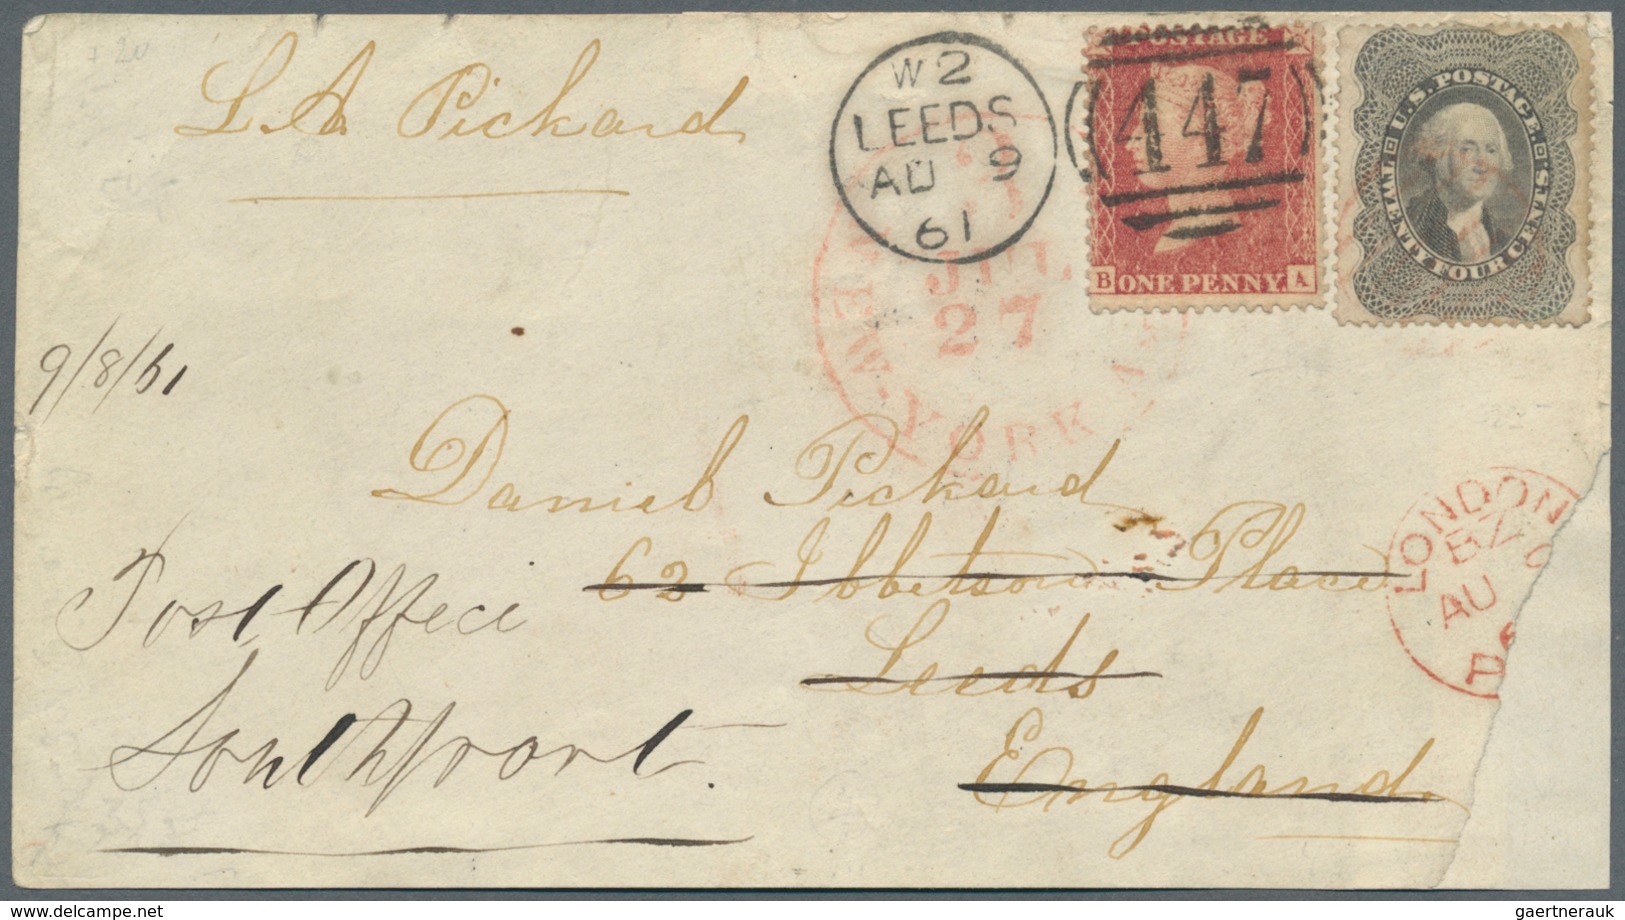 L. A. Pickard
W2
LEEDS
AU 9
61
POSTAGE
447
B ONE PENNY A
U.S. POSTAGE.
TWENTY FOUR CENTS.
NEW YORK
JUL
27
9/8/61
Daniel Pickard
62 Ibbetson Place
Leeds
England.
Post Office
Southport.
LONDON
AU
P
www.delcampe.net
gaertnerauk